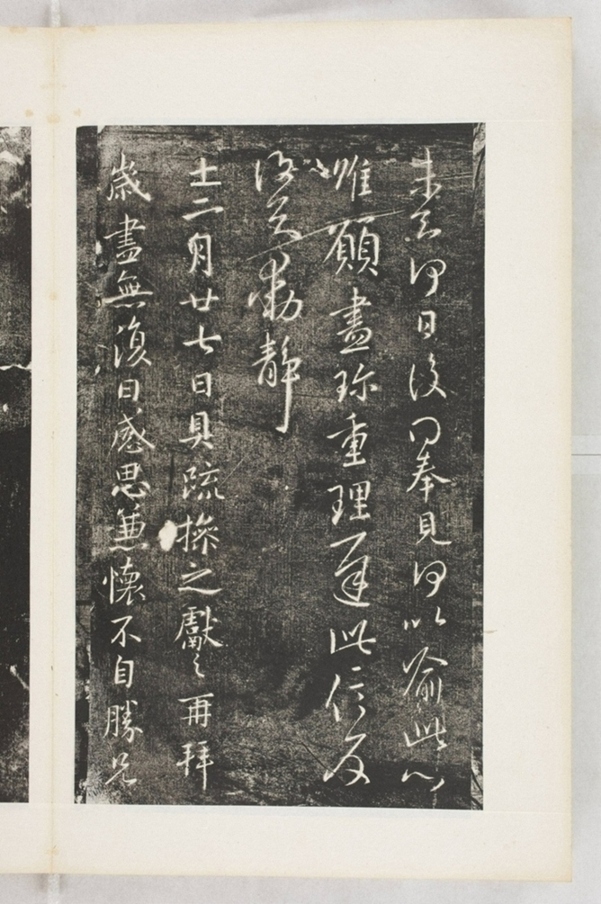 未知何日復得奉見何以喻此心
惟願盡珍重理遲此信反
復知動靜
十二月廿七日具疏操之獻之再拜
歲盡無復日感思兼懷不自勝兄